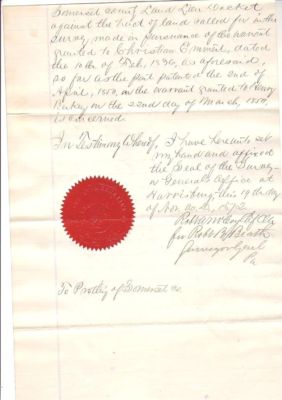 Somerset County Land Lien Docket
against the tract of land called for in the
Survey, made in pursuance of the warrant
granted to Christian Emmert, dated
the 10th of Feb, 1836, as aforesaid,
so far as the patent of the 2nd of
April, 1850, on the warrant granted to
on the 22nd day of March, 1850,
is concerned.
In Testimony Whereof, I have hereunto set
my hand and affixed
the Seal of the Survey-
or General's Office at
Harrisburg, this 19th day
of Nov. A.D. 1872
for Robt B Beath
Surveyor Genl
Pa
To Prothy of Somerset Co.